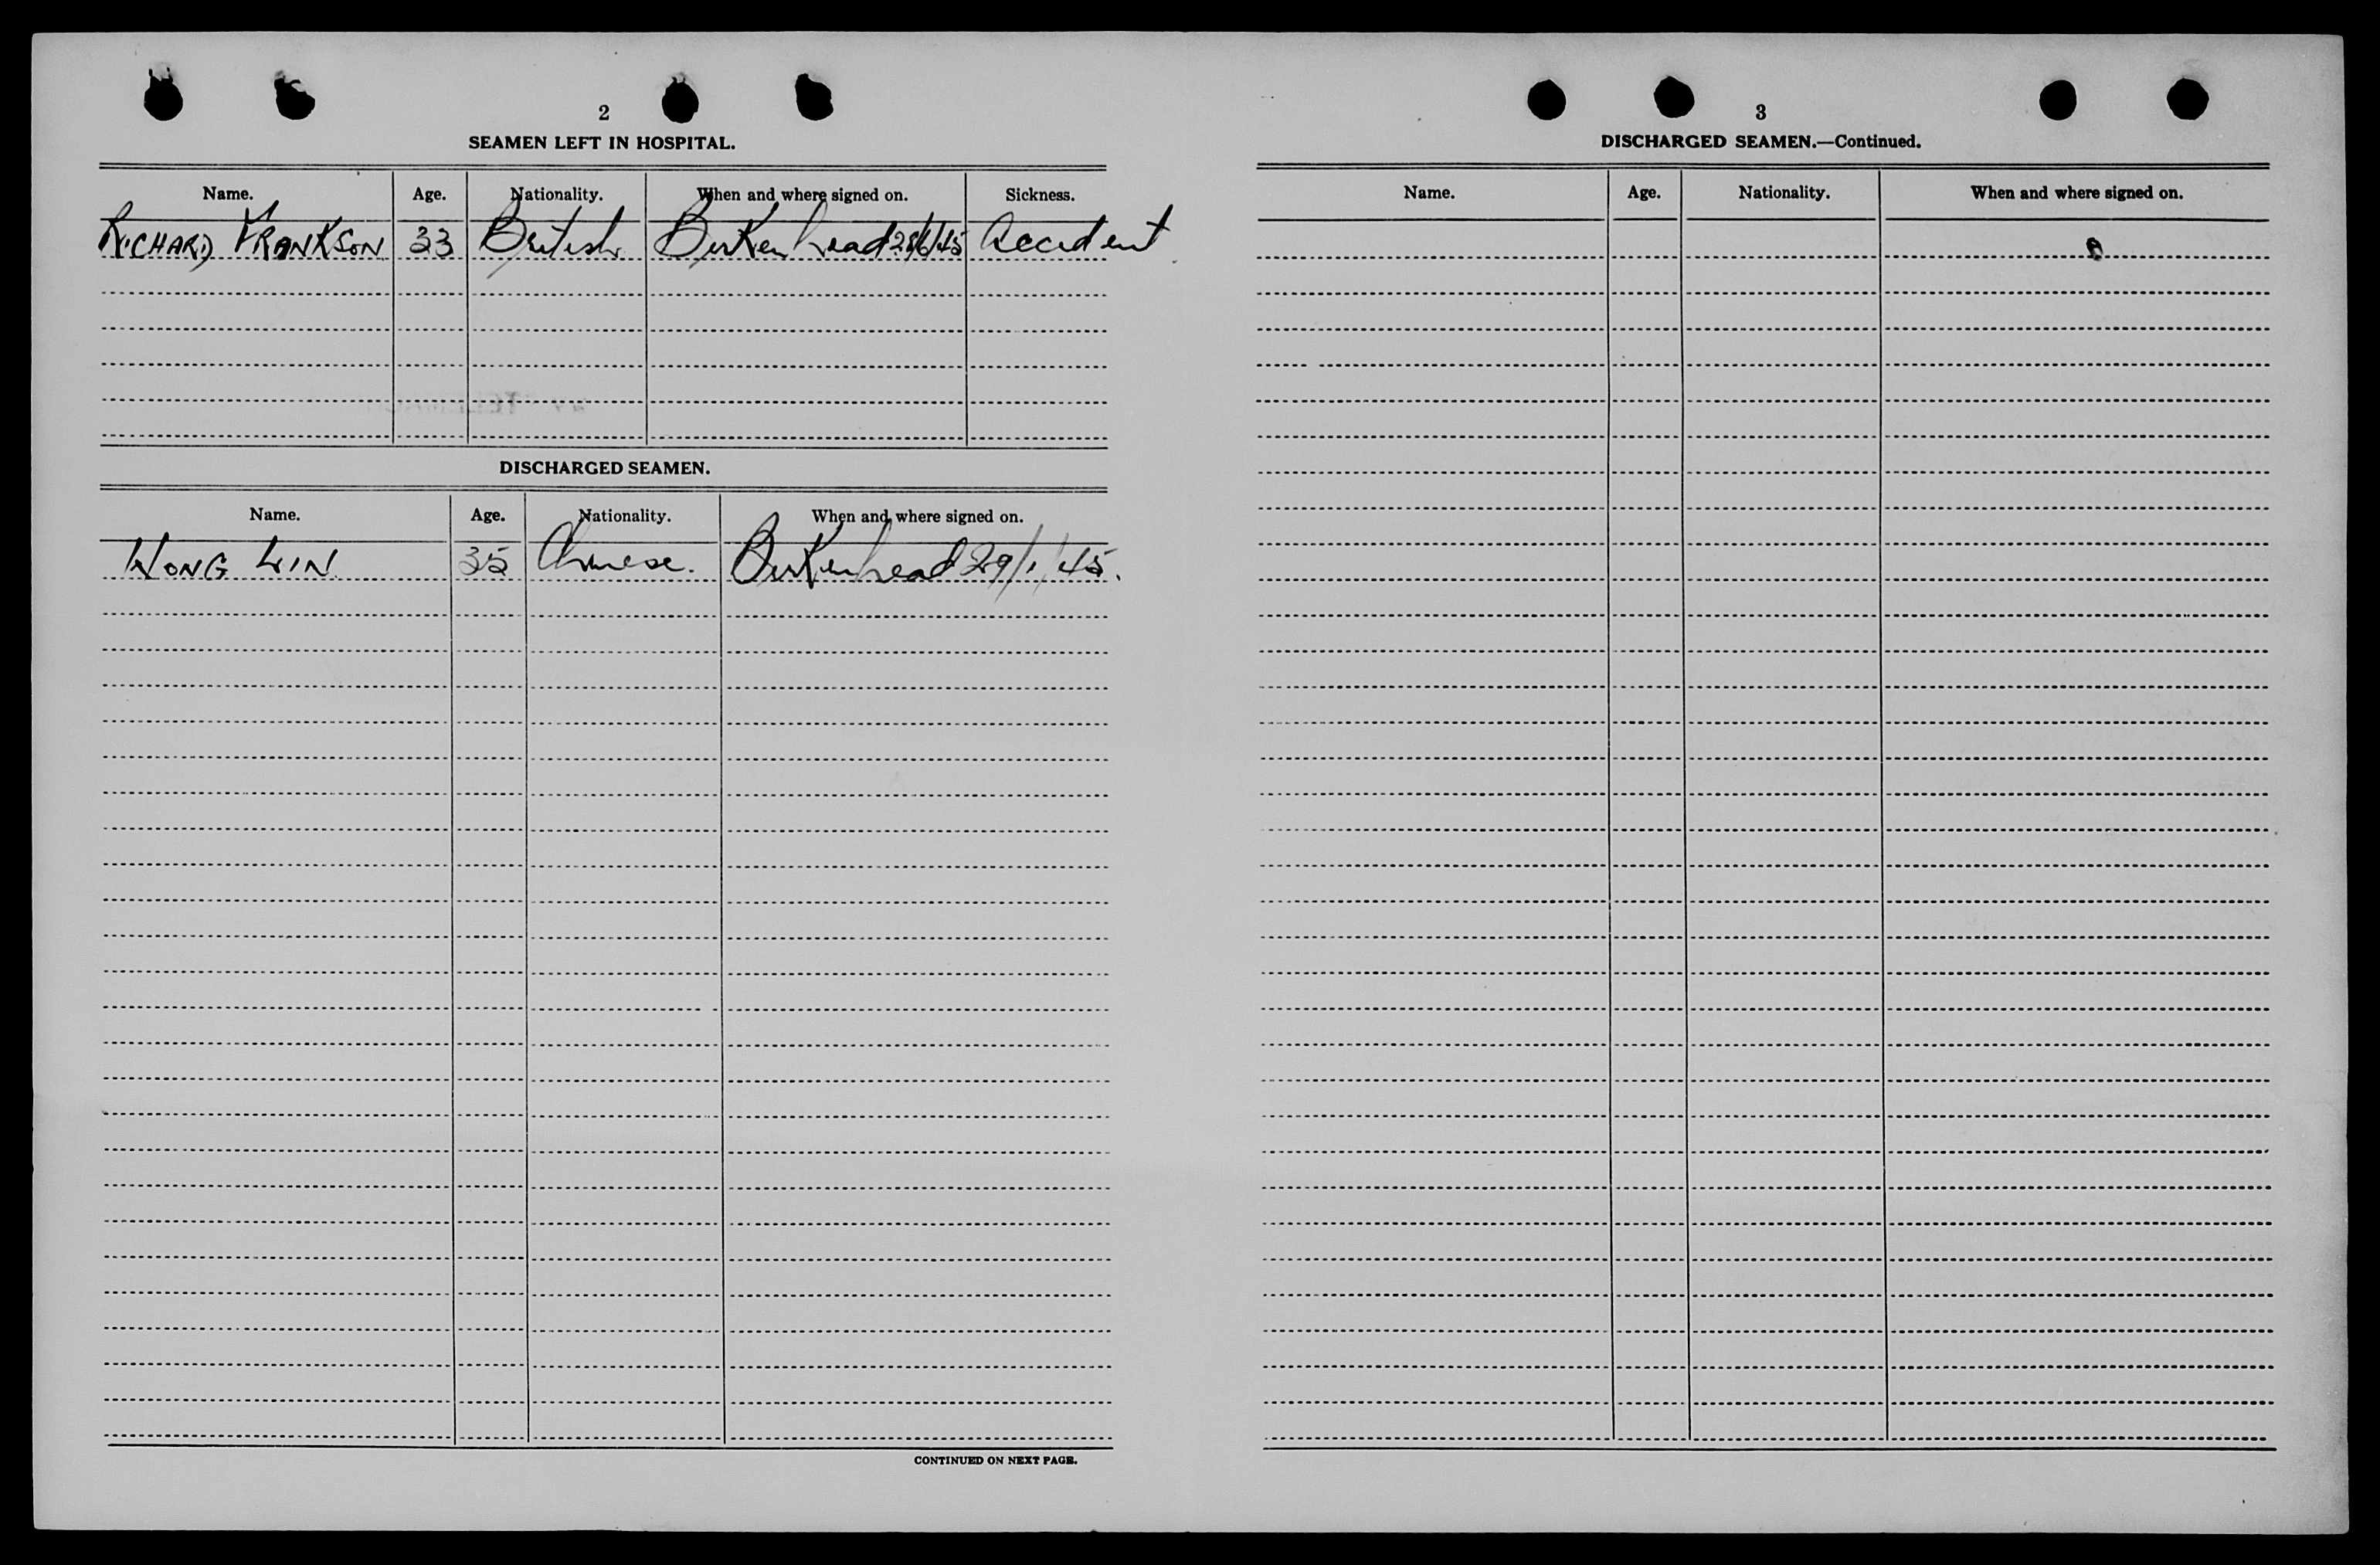 2
SEAMEN LEFT IN HOSPITAL.
Name. Age. Nationality. When and where signed on. Sickness.
RICHARD FRANKSON 33 British Birkenhead 28/6/45 Accident
DISCHARGED SEAMEN.
Name. Age. Nationality. When and where signed on.
WONG LIN 35 Chinese. Birkenhead 29/1/45.
CONTINUED ON NEXT PAGE.
3
DISCHARGED SEAMEN.—Continued.
Name. Age. Nationality. When and where signed on.